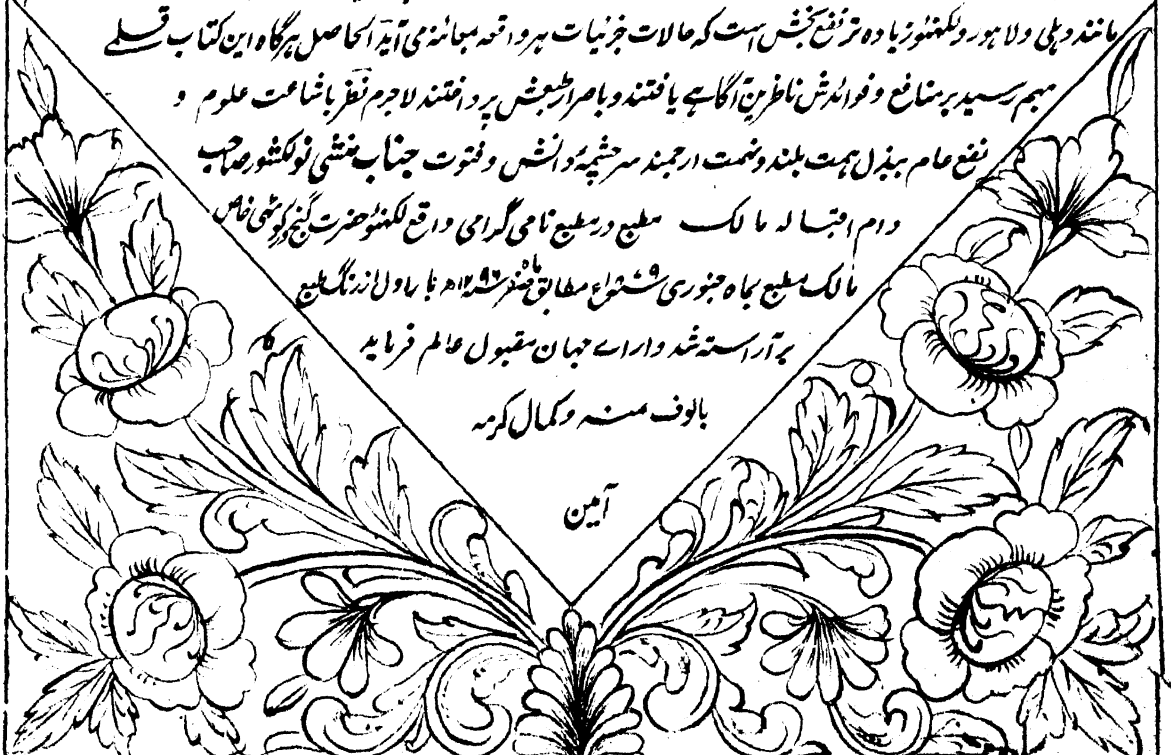 مانند دہلی و لاہور و لکھنؤ زیادہ تر نفع بخش است که حالات جزئیات ہر واقعہ بمعائنہ می آید الحاصل ہرگاہ این کتاب قلمے
بہم رسید بر منافع و فوائدش ناظرین آگاہے یافتند و باصرار طبعش پرداختند لاجرم نظر باشاعت علوم و
نفع عام ببذل ہمت بلند و نہمت ارجمند سرچشمۂ دانش و فتوت جناب منشی نولکشور صاحب
دام اقبالہ مالک مطبع در مطبع نامی گرامی واقع لکھنؤ حضرت گنج کوٹھی خاص
مالک مطبع بماہ جنوری ۱۸۷۹ء مطابق ماہ صفر ۱۲۹۶ھ بار اول از رنگ طبع
بر آراستہ شد دارائے جہان مقبول عالم فرماید
بالوف منہ و کمال کرمہ
آمین